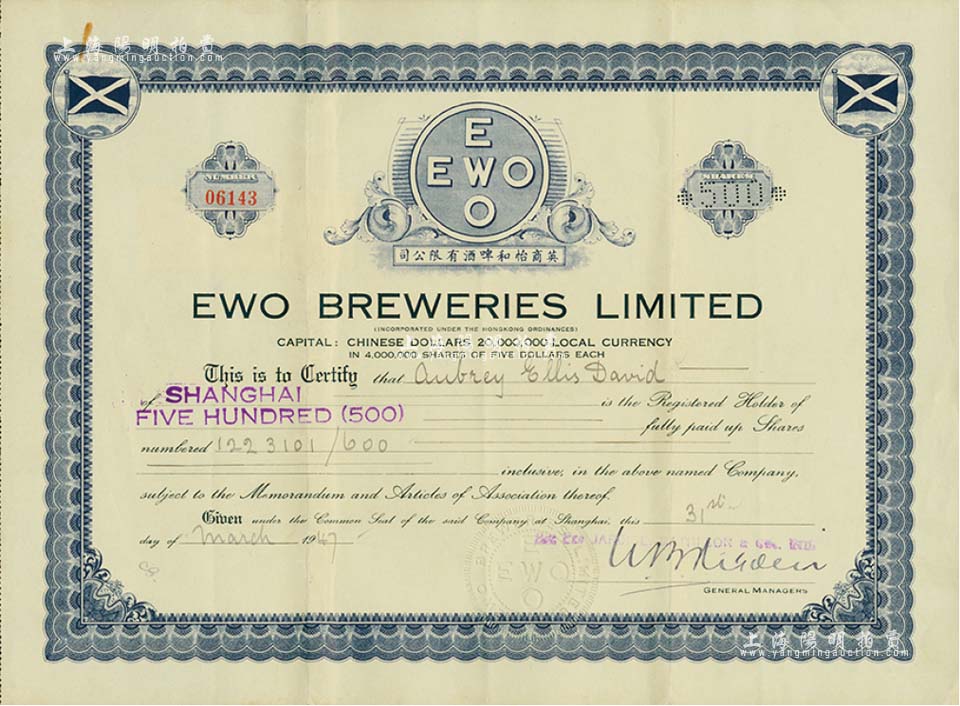 上海陽明拍賣
www.yangmingauction.com
NUMBER
06143
E
EWO
O
SHARES
500
司公限有酒啤和怡商英
EWO BREWERIES LIMITED
(INCORPORATED UNDER THE HONGKONG ORDINANCES)
CAPITAL: CHINESE DOLLARS 20,000,000 LOCAL CURRENCY
IN 4,000,000 SHARES OF FIVE DOLLARS EACH
This is to Certify that Aubrey Ellis David
of SHANGHAI is the Registered Holder of
FIVE HUNDRED (500) fully paid up Shares
numbered 1223101/600
inclusive, in the above named Company,
subject to the Memorandum and Articles of Association thereof.
Given under the Common Seal of the said Company at Shanghai, this 31st
day of March 1947
EWO
GENERAL MANAGERS
上海陽明拍賣
www.yangmingauction.com